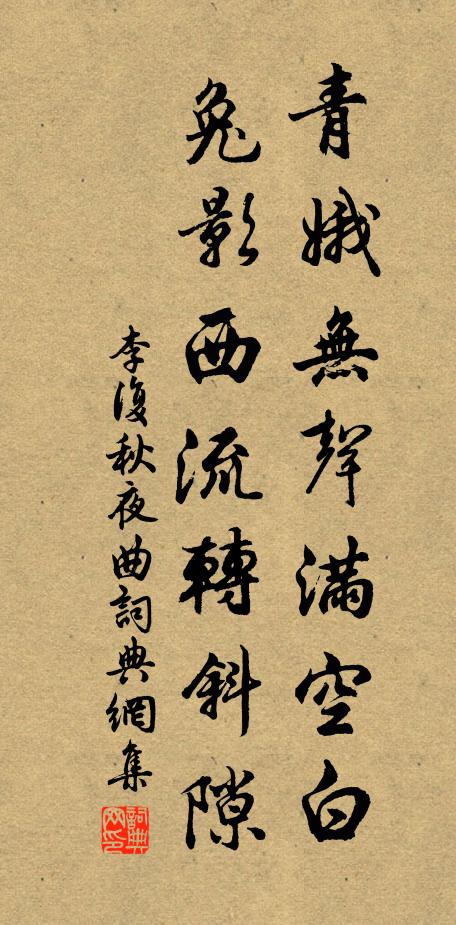 青娥無聲滿空白
兔影西流轉斜隙
李復秋夜曲詞典網集
詞典網印